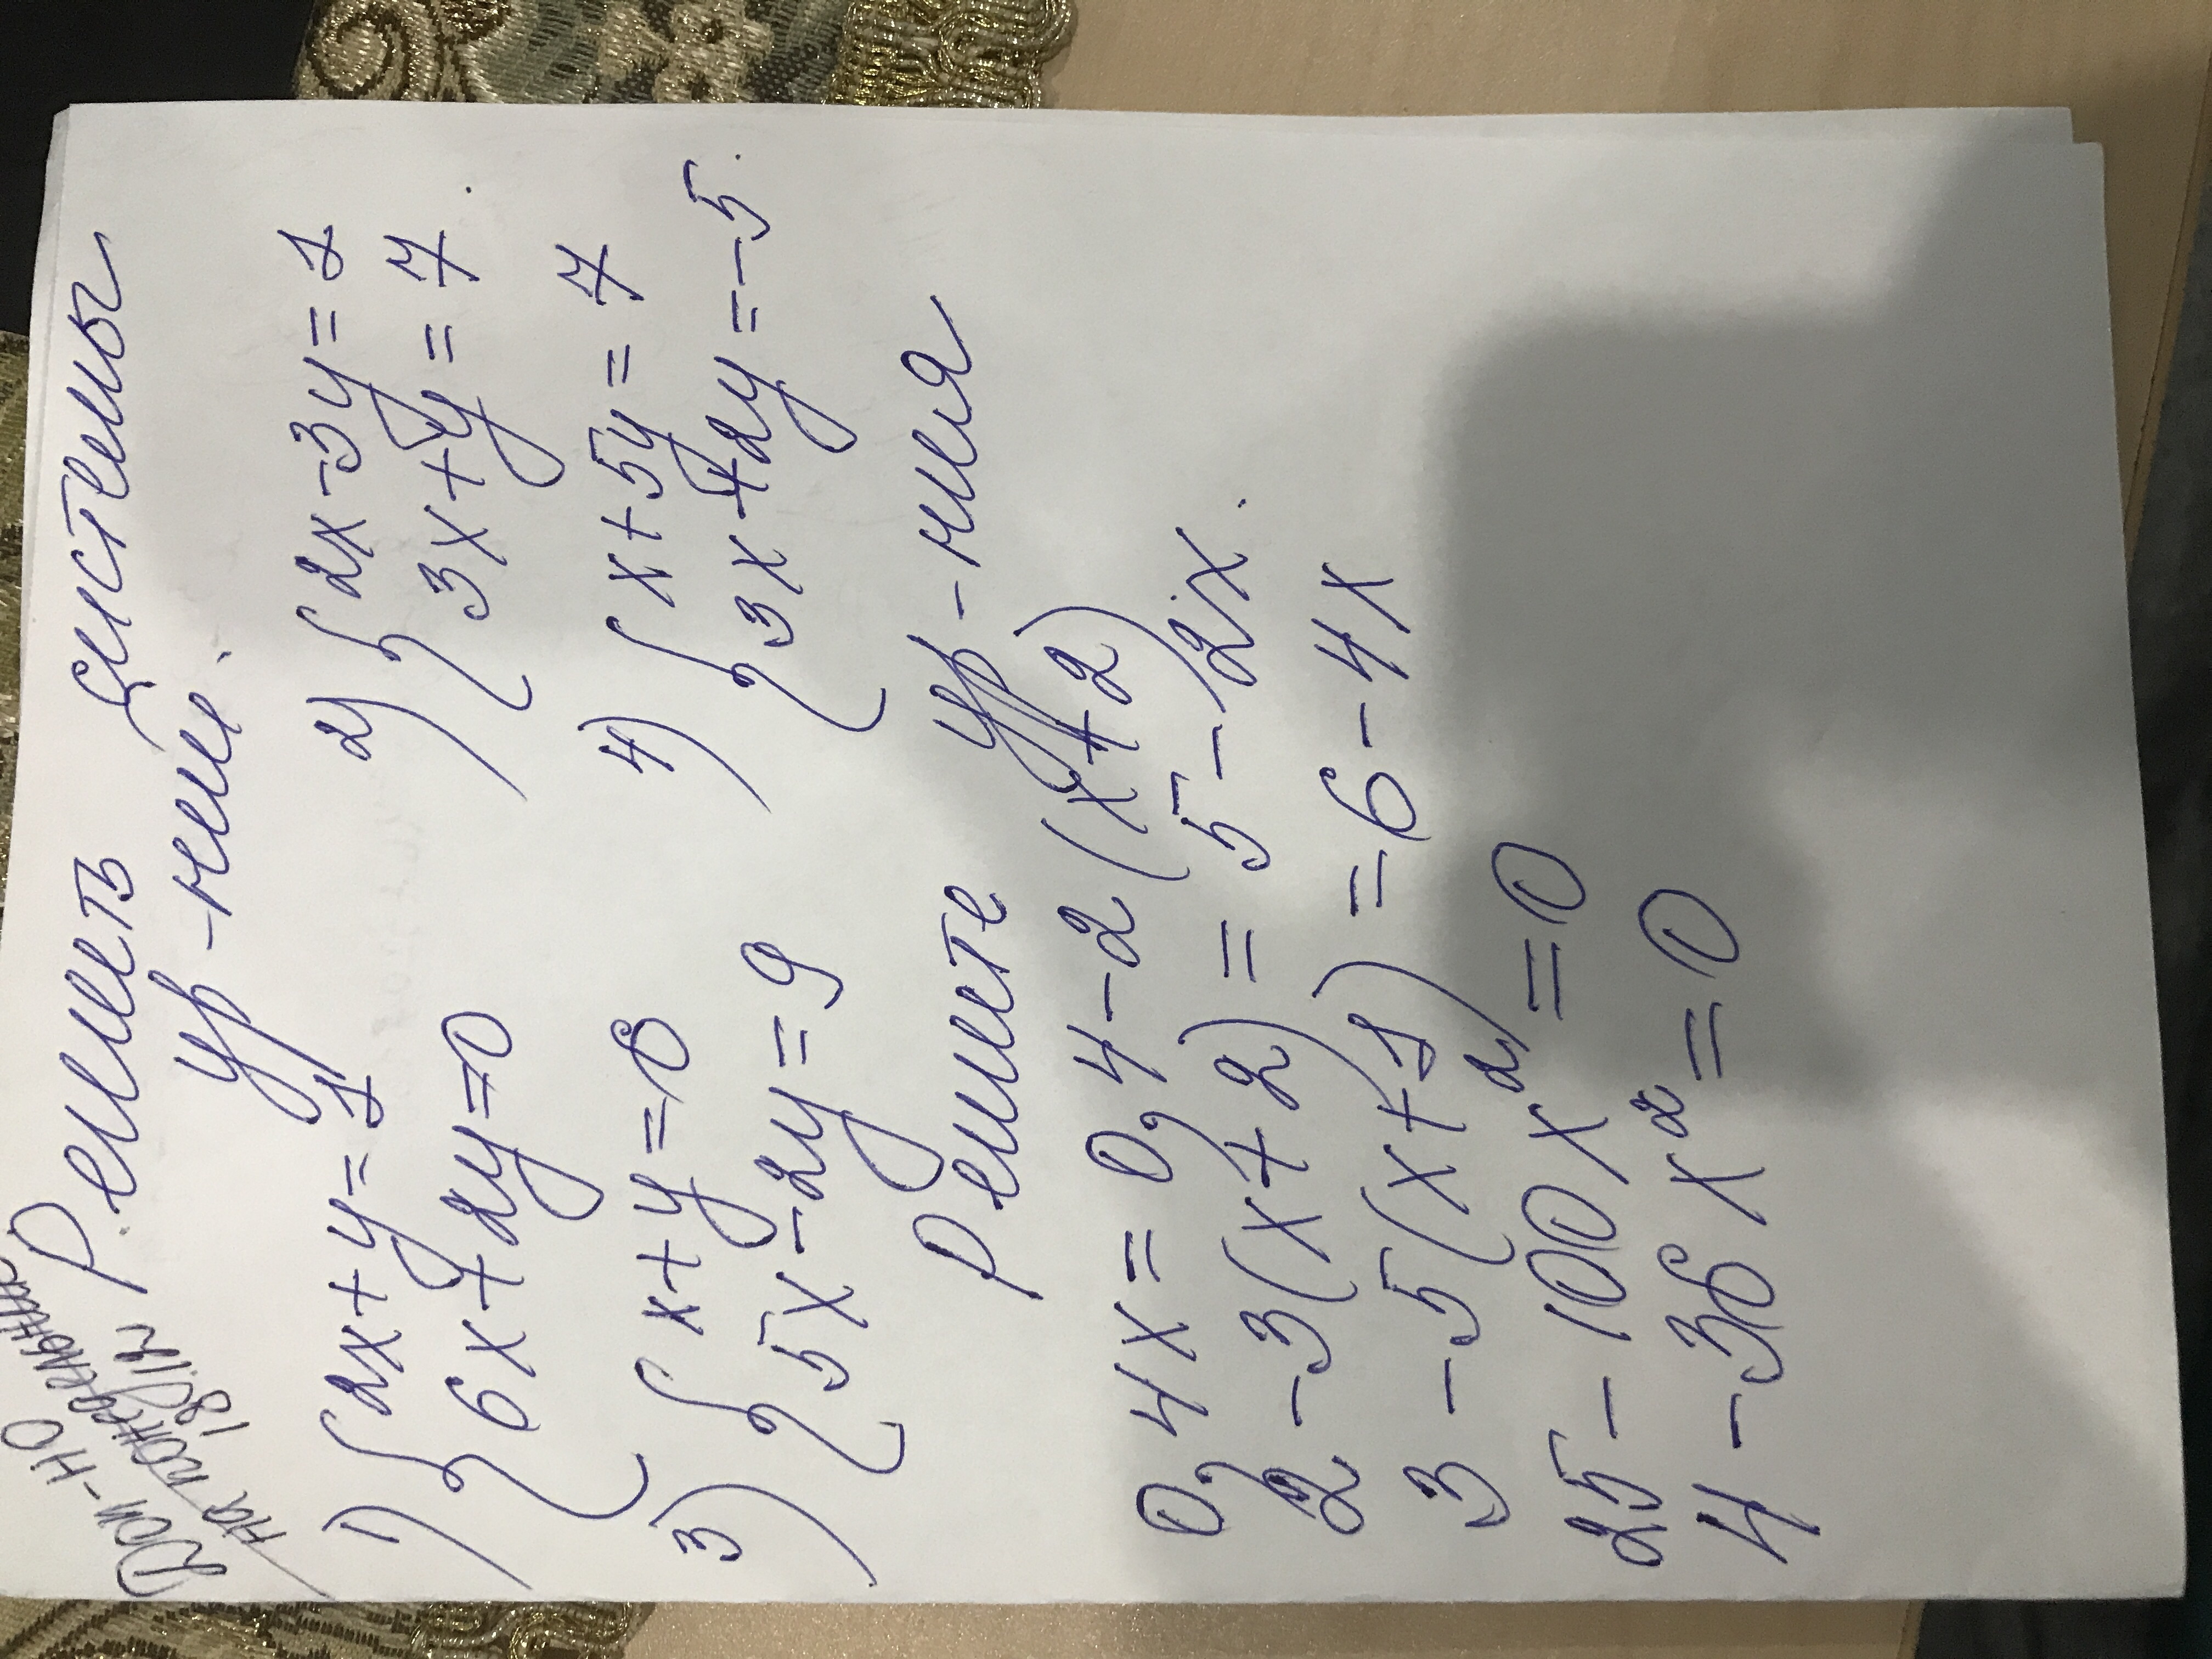 Дом-но
на понедельник
18.12.
Решить системы
ур-ний.
1) { 2x+y=1
6x+2y=0
2) { 2x-3y=1
3x+y=7.
3) { x+y=6
5x-2y=9
4) { x+5y=7
3x+2y=-5.
Решите ур-ния
0,4x=0,4-2(x+2)
2-3(x+2)=5-2x.
3-5(x+1)=6-4x
25-100x²=0
4-36x²=0